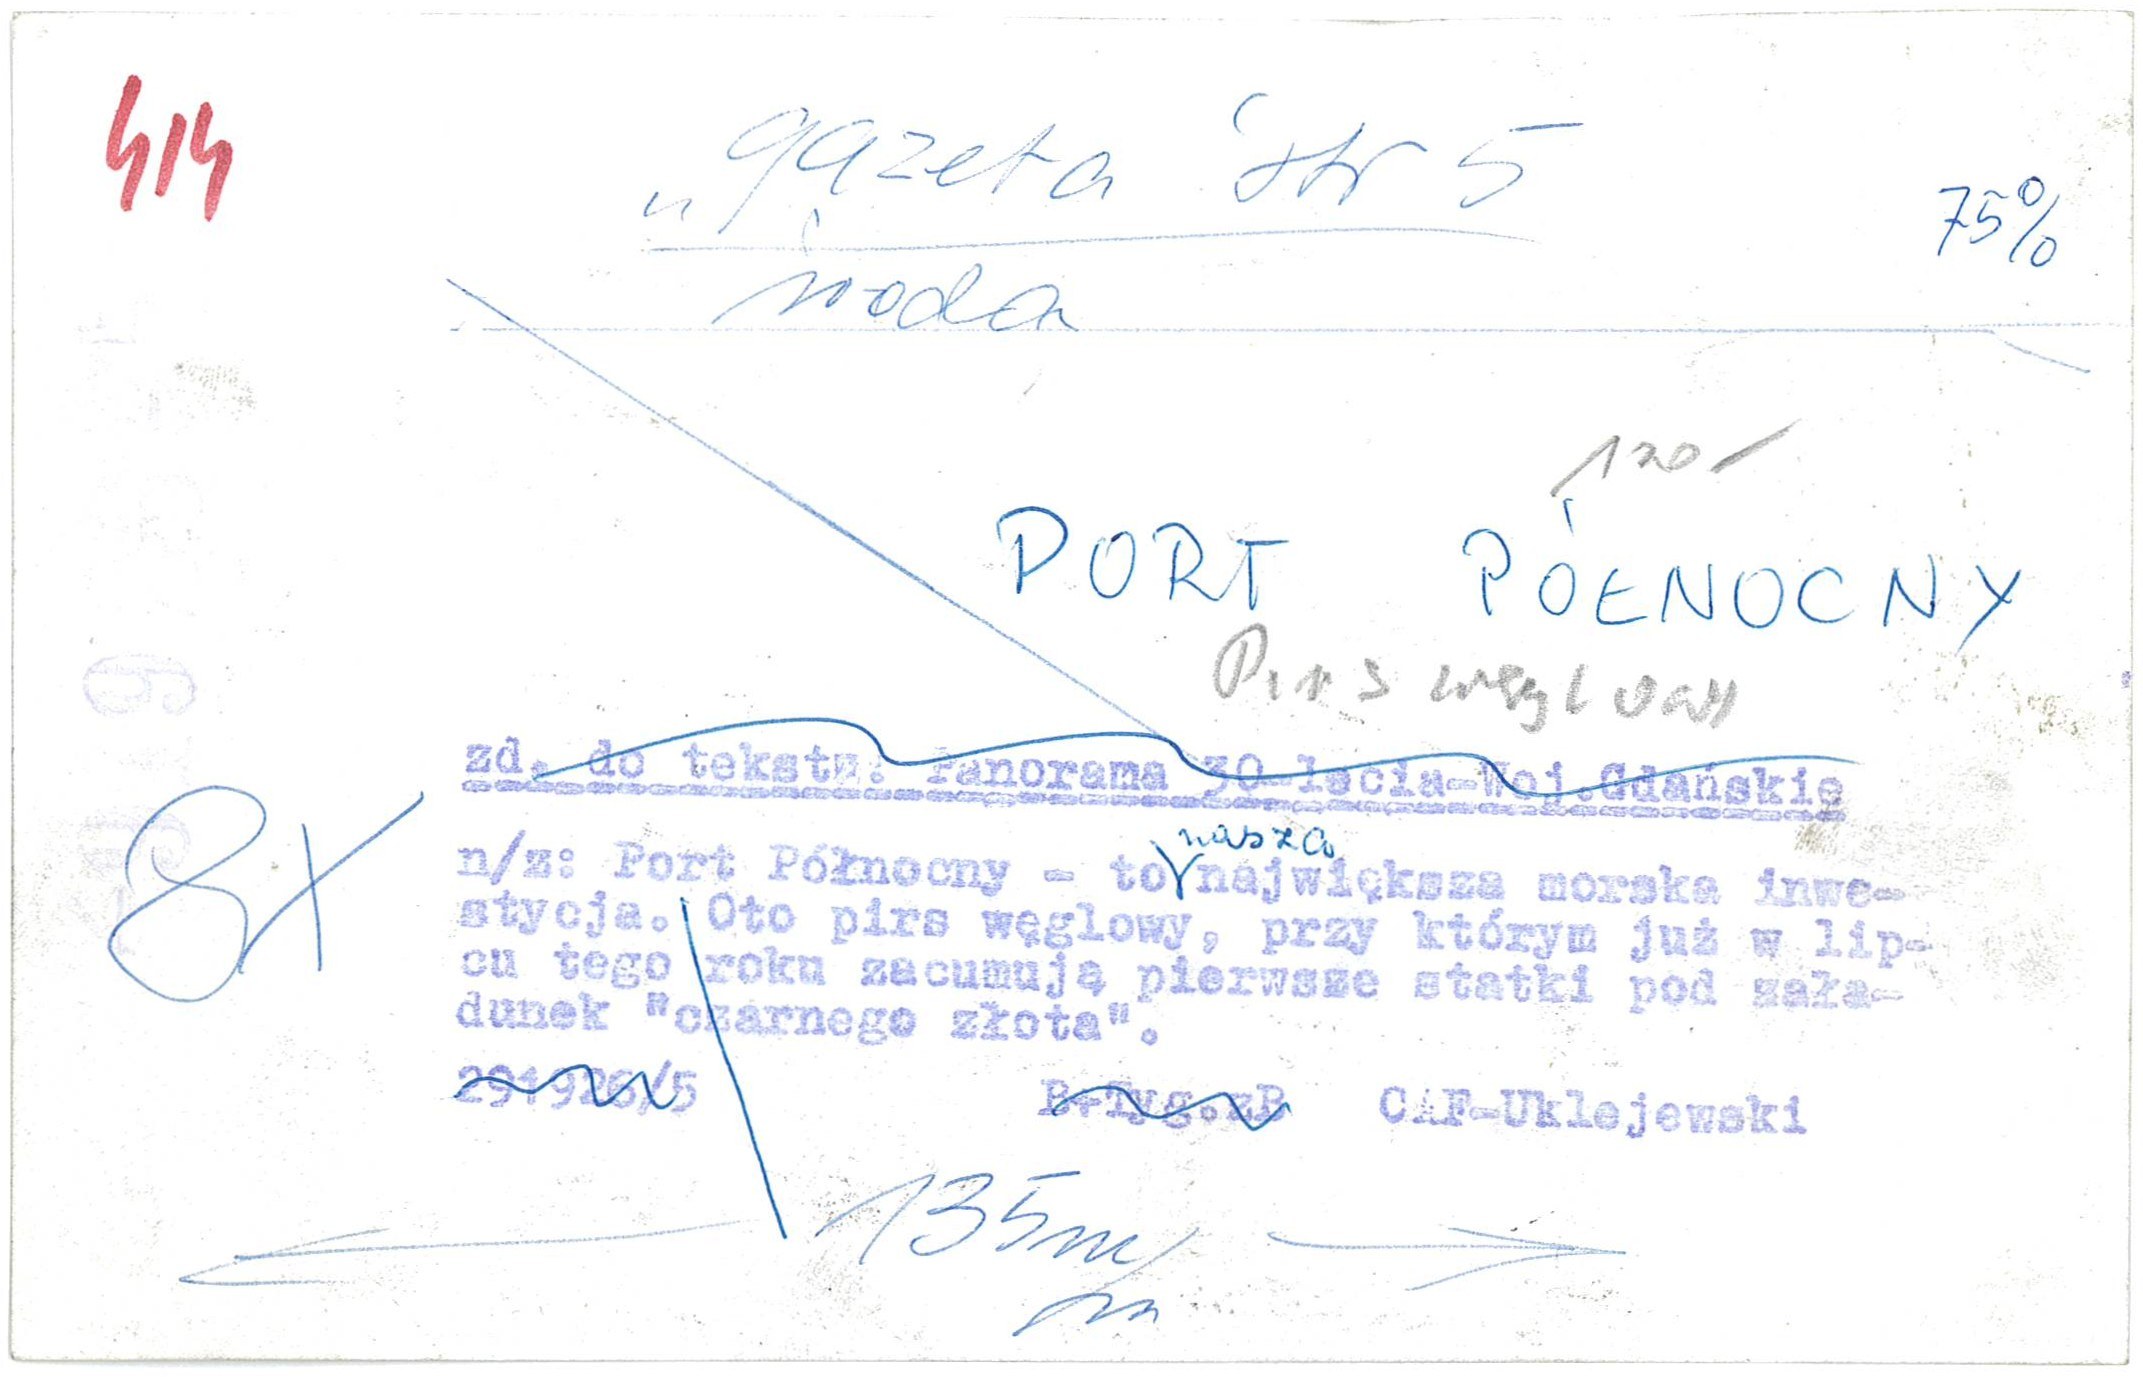 414
"gazeta str 5
75%
środa
120
PORT PÓŁNOCNY
Pirs węglowy
zd. do tekstu: Panorama 30-lecia-Woj.Gdańskie
nasza
n/z: Port Północny - to największa morska inwe-
stycja. Oto pirs węglowy, przy którym już w lip-
cu tego roku zacumują pierwsze statki pod zała-
dunek "czarnego złota".
8x
291926/5 B.Tyg.zB CAF-Uklejewski
135m/m